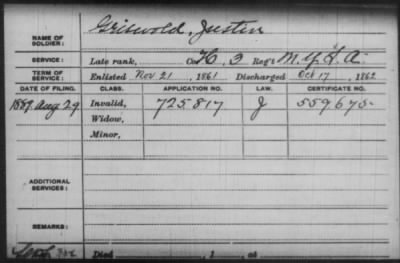 Griswold, Justin
NAME OF SOLDIER:
SERVICE: Late rank, Co. H, 3 Reg't N.Y. L. A.
TERM OF SERVICE: Enlisted Nov 21, 1861 Discharged Oct 17, 1862
DATE OF FILING. CLASS. APPLICATION NO. LAW. CERTIFICATE NO.
1889, Aug 29 Invalid, 725.817 J 559675.
Widow,
Minor,
ADDITIONAL SERVICES:
REMARKS:
Died , 1 , at